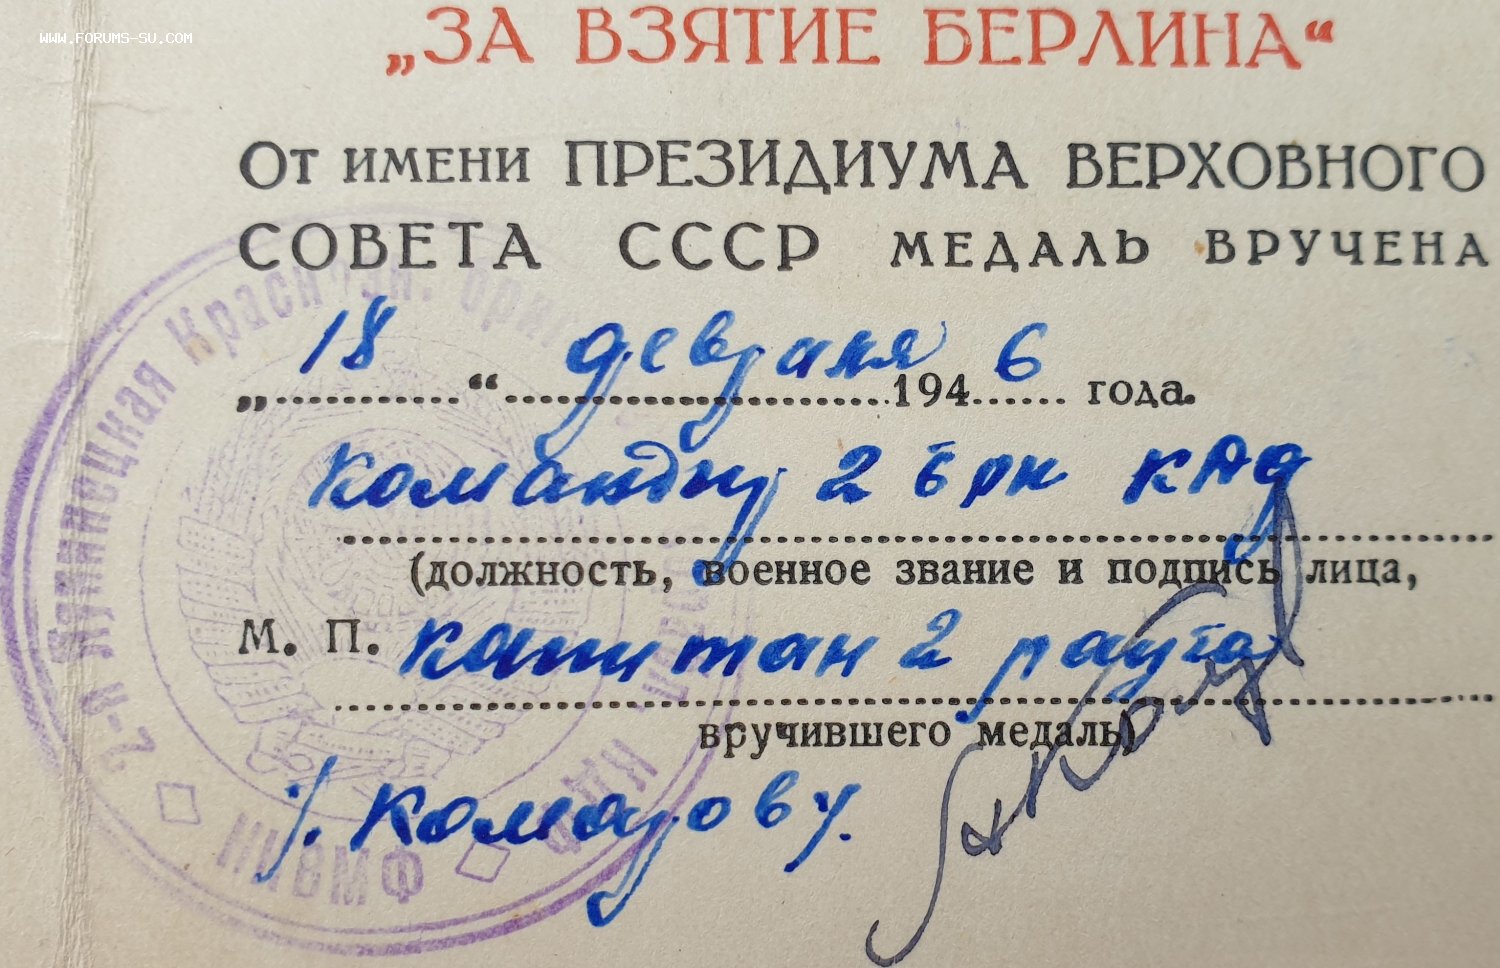 WWW.FORUMS-SU.COM
„ЗА ВЗЯТИЕ БЕРЛИНА“
От имени ПРЕЗИДИУМА ВЕРХОВНОГО
СОВЕТА СССР МЕДАЛЬ ВРУЧЕНА
„18“ февраля 1946 года.
Команду 2 брк КАФ
(должность, военное звание и подпись лица,
М. П. капитан 2 ранга
вручившего медаль)
2-я Лунинецкая Красн